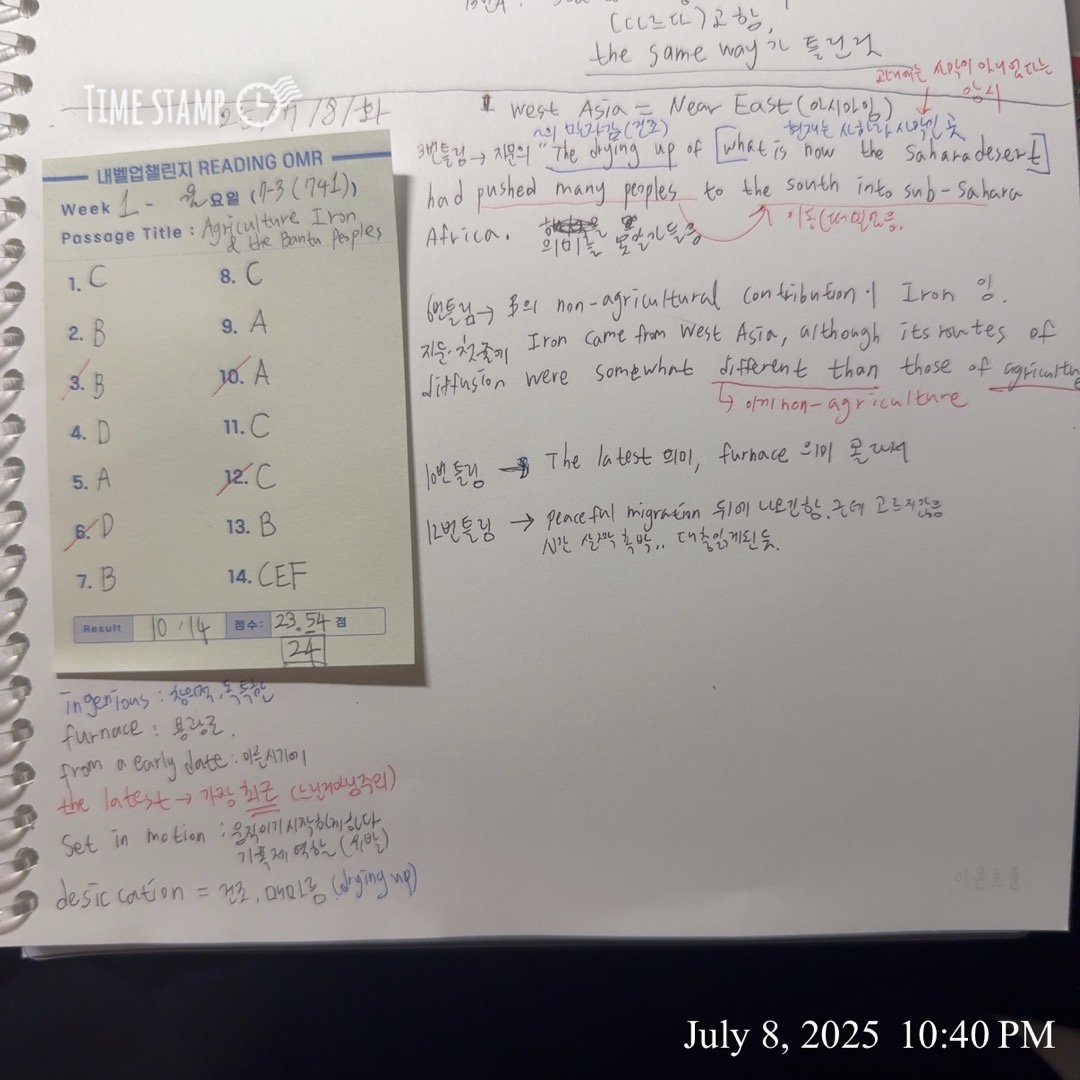 (다르다)고 함,
the same way가 틀린것
TIME STAMP
/8/화
고대에는 사막이 아니었다는
암시
West Asia = Near East (아시아임)
~의 말라감(건조)
현재는 사하라 사막인 곳
3번틀림 → 지문의 "The drying up of [what is now the Sahara desert]
had pushed many peoples to the south into sub-Sahara
Africa. 의미를
이동
6번틀림 → 의 non-agricultural contribution이 Iron 임.
지문 첫줄에 Iron came from West Asia, although its routes of
diffusion were somewhat different than those of agricultu
↳ 이미 non-agriculture
10번틀림 → The latest 의미, furnace 의미 몰라서
12번틀림 → peaceful migration 뒤에 나오긴함. 근데 고르지않음
시간 살짝 촉박.. 대충읽게된듯.
내벨업챌린지 READING OMR
Week 1 - 월요일 (7-3 (741))
Passage Title : Agriculture Iron
& the Bantu Peoples
1. C
2. B
3. B
4. D
5. A
6. D
7. B
8. C
9. A
10. A
11. C
12. C
13. B
14. CEF
Result 10 / 14 점수: 23.54 점
24
ingenious : 창의적, 독특한
furnace : 용광로.
from a early date : 이른시기에
the latest → 가장 최근
Set in motion : 움직이기시작하게하다
기폭제 역할
desiccation = 건조, 메마름 (drying up)
July 8, 2025 10:40 PM